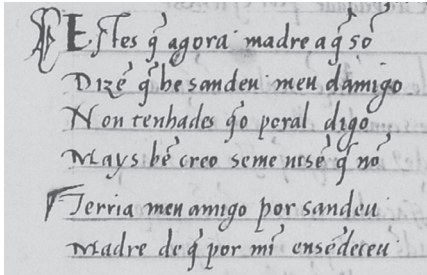 Estes q̃ agora madre aq̃ sõ
Dizẽ q̃ he sandeu meu damigo
Non tenhades q̃o poral digo
Mays bẽ creo seme uisẽ q̃ nõ
Terria meu amigo por sandeu
Madre de q̃ por mĩ ensẽdeceu